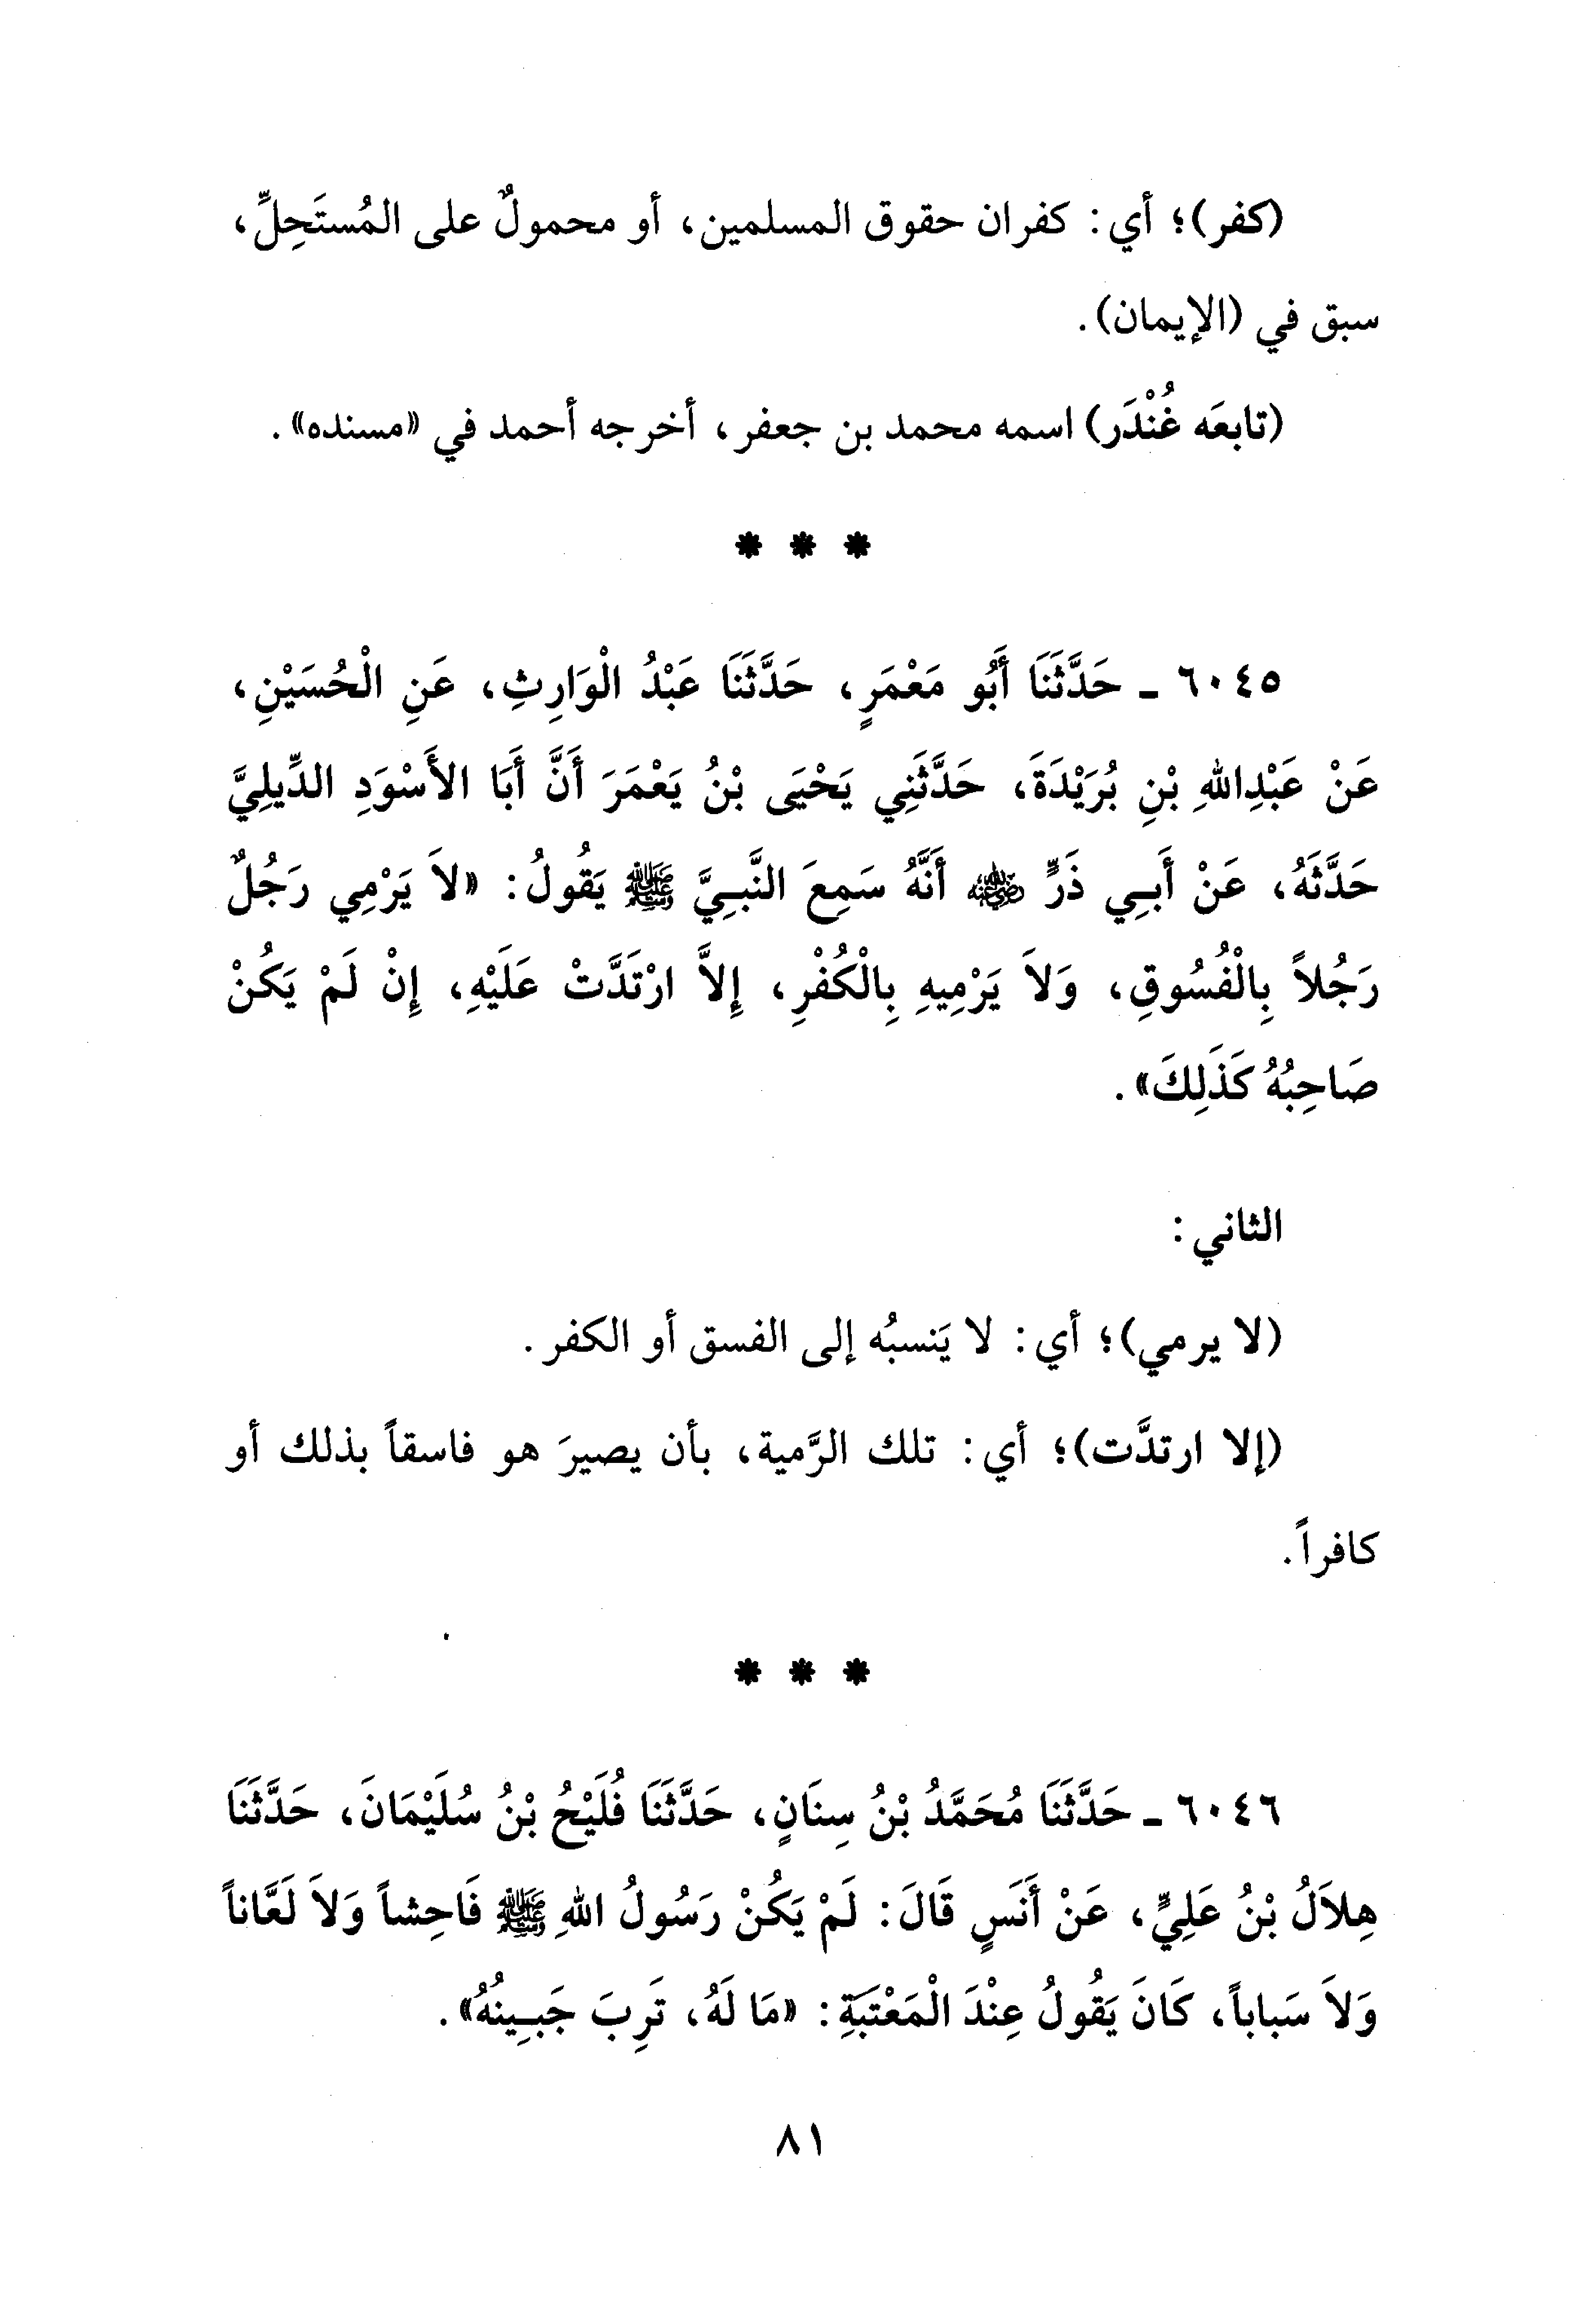 (كفر)؛ أي: كفران حقوق المسلمين، أو محمولٌ على المُستَحِلِّ،
سبق في (الإيمان).
(تابعَه غُنْدَر) اسمه محمد بن جعفر، أخرجه أحمد في «مسنده».
* * *
٦٠٤٥ ـ حَدَّثَنَا أَبُو مَعْمَرٍ، حَدَّثَنَا عَبْدُ الْوَارِثِ، عَنِ الْحُسَيْنِ،
عَنْ عَبْدِاللهِ بْنِ بُرَيْدَةَ، حَدَّثَنِي يَحْيَى بْنُ يَعْمَرَ أَنَّ أَبَا الأَسْوَدِ الدِّيلِيَّ
حَدَّثَهُ، عَنْ أَبِي ذَرٍّ ؓ أَنَّهُ سَمِعَ النَّبِيَّ ﷺ يَقُولُ: «لاَ يَرْمِي رَجُلٌ
رَجُلاً بِالْفُسُوقِ، وَلاَ يَرْمِيهِ بِالْكُفْرِ، إِلاَّ ارْتَدَّتْ عَلَيْهِ، إِنْ لَمْ يَكُنْ
صَاحِبُهُ كَذَلِكَ».
الثاني:
(لا يرمي)؛ أي: لا يَنسبُه إلى الفسق أو الكفر.
(إلا ارتدَّت)؛ أي: تلك الرَّمية، بأن يصيرَ هو فاسقاً بذلك أو
كافراً.
* * *
٦٠٤٦ ـ حَدَّثَنَا مُحَمَّدُ بْنُ سِنَانٍ، حَدَّثَنَا فُلَيْحُ بْنُ سُلَيْمَانَ، حَدَّثَنَا
هِلاَلُ بْنُ عَلِيٍّ، عَنْ أَنَسٍ قَالَ: لَمْ يَكُنْ رَسُولُ اللهِ ﷺ فَاحِشاً وَلاَ لَعَّاناً
وَلاَ سَباباً، كَانَ يَقُولُ عِنْدَ الْمَعْتَبَةِ: «مَا لَهُ، تَرِبَ جَبِينُهُ».
٨١